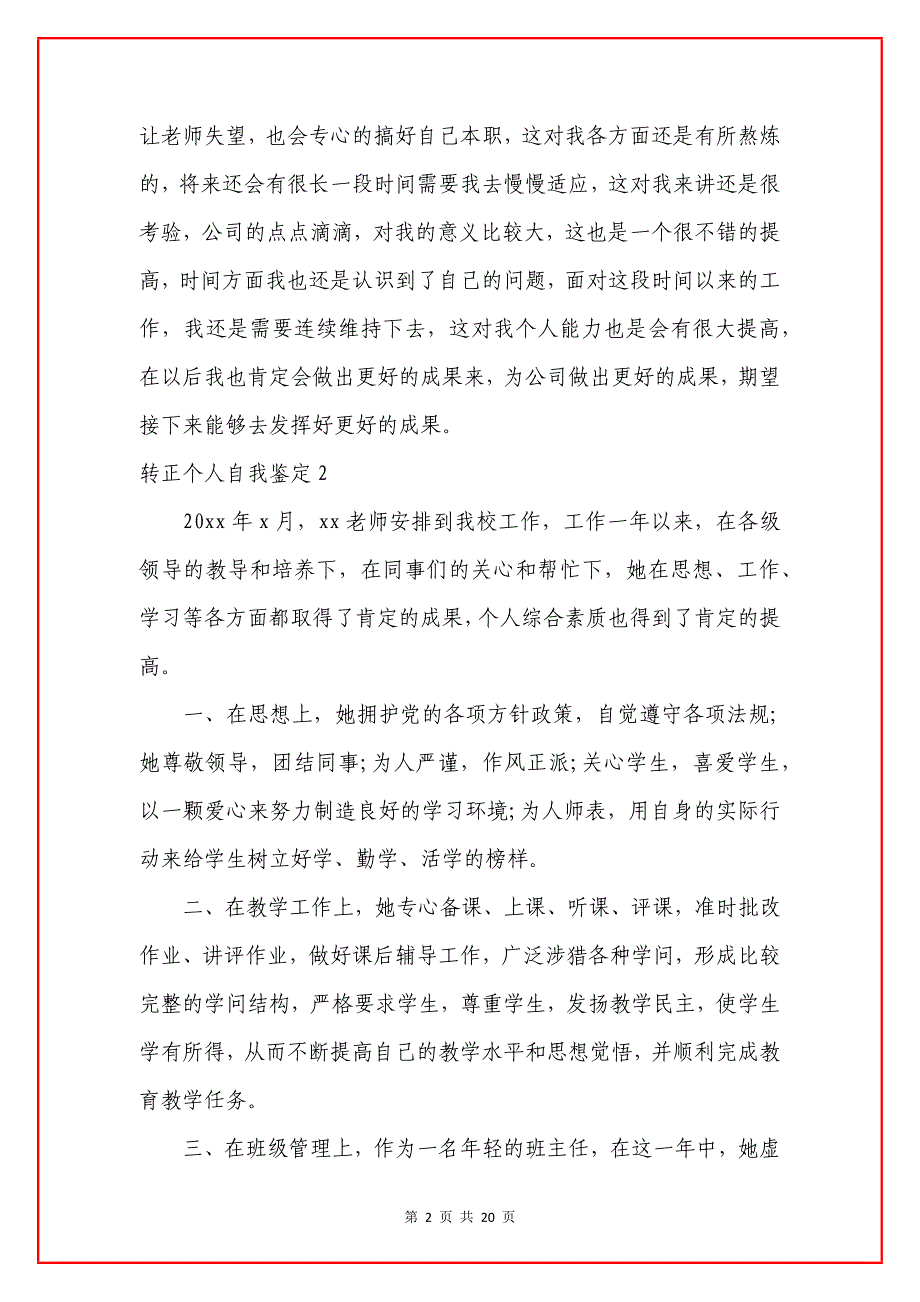 让老师失望，也会专心的搞好自己本职，这对我各方面还是有所熬炼
的，将来还会有很长一段时间需要我去慢慢适应，这对我来讲还是很
考验，公司的点点滴滴，对我的意义比较大，这也是一个很不错的提
高，时间方面我也还是认识到了自己的问题，面对这段时间以来的工
作，我还是需要连续维持下去，这对我个人能力也是会有很大提高，
在以后我也肯定会做出更好的成果来，为公司做出更好的成果，期望
接下来能够去发挥好更好的成果。
转正个人自我鉴定 2
20xx 年 x 月，xx 老师安排到我校工作，工作一年以来，在各级
领导的教导和培养下，在同事们的关心和帮忙下，她在思想、工作、
学习等各方面都取得了肯定的成果，个人综合素质也得到了肯定的提
高。
一、在思想上，她拥护党的各项方针政策，自觉遵守各项法规；
她尊敬领导，团结同事；为人严谨，作风正派；关心学生，喜爱学生，
以一颗爱心来努力制造良好的学习环境；为人师表，用自身的实际行
动来给学生树立好学、勤学、活学的榜样。
二、在教学工作上，她专心备课、上课、听课、评课，准时批改
作业、讲评作业，做好课后辅导工作，广泛涉猎各种学问，形成比较
完整的学问结构，严格要求学生，尊重学生，发扬教学民主，使学生
学有所得，从而不断提高自己的教学水平和思想觉悟，并顺利完成教
育教学任务。
三、在班级管理上，作为一名年轻的班主任，在这一年中，她虚
第 2 页 共 20 页